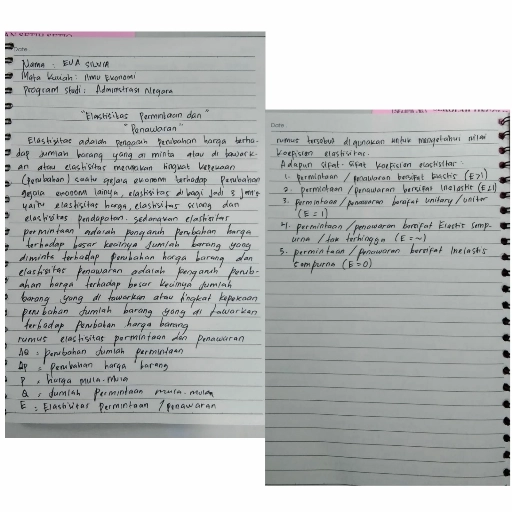 Date
Nama : EUA SILVIA
Mata Kuliah : Ilmu Ekonomi
Program Studi : Administrasi Negara
"Elastisitas Permintaan dan"
"Penawaran"
Elastisitas adalah pengaruh perubahan harga terha-
dap jumlah barang yang di minta atau di tawark-
an atau elastisitas merupakan tingkat kepekaan
(perubahan) suatu gejala ekonomi terhadap perubahan
gejala ekonomi lainya, elastisitas di bagi Jadi 3 jenis
yaitu elastisitas harga, elastisitas silang dan
elastisitas pendapatan. sedangkan elastisitas
permintaan adalah pengaruh perubahan harga
terhadap besar kecilnya Jumlah barang yang
diminta terhadap perubahan harga barang dan
elastisitas penawaran adalah pengaruh perub-
ahan harga terhadap besar kecilnya Jumlah
barang yang di tawarkan atau tingkat kepekaan
perubahan Jumlah barang yang di tawarkan
terhadap Perubahan harga barang
rumus elastisitas permintaan dan penawaran
ΔQ : perubahan Jumlah permintaan
Δp : perubahan harga barang
P : harga mula-mula
Q : Jumlah Permintaan mula-mulan
E : Elastisitas Permintaan / penawaran
Date
rumus tersebut digunakan untuk mengetahui nilai
koefisien elastisitas.
Adapun sifat-sifat koefisien elastisitas :
1. permintaan / penawaran bersifat Elastis (E>1)
2. permintaan / penawaran bersifat Inelastis (E<1)
3. permintaan / penawaran bersifat unitary / uniter
(E = 1)
4. permintaan / penawaran bersifat Elastis Semp-
urna / tak terhingga (E = ~)
5. permintaan / penawaran bersifat Inelastis
Sempurna (E = 0)